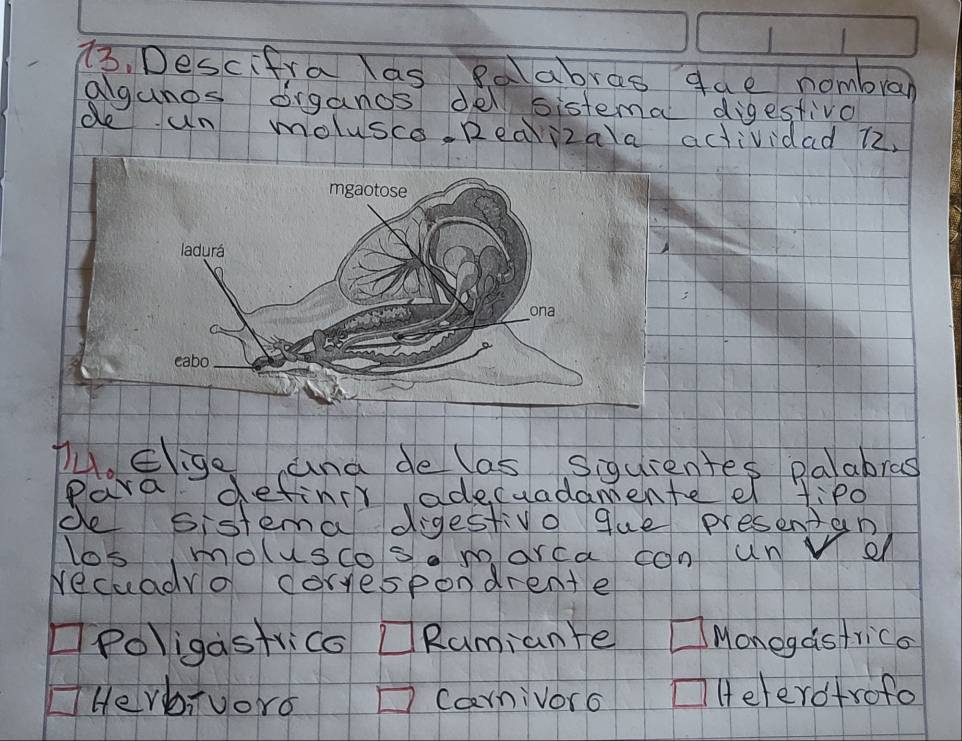 13. Descifra las palabras que nombran
algunos órganos del sistema digestivo
de un molusco. Realiza la actividad 12.
mgaotose
ladurá
ona
eabo
14. Elige una de las siguientes palabras
para definir adecuadamente el tipo
de sistema digestivo que presentan
los moluscos. marca con un ✓ el
recuadro correspondiente
□ Poligástrico □ Rumiante □ Monogástrico
□ Herbívoro □ Carnivoro □ Heterótrofo